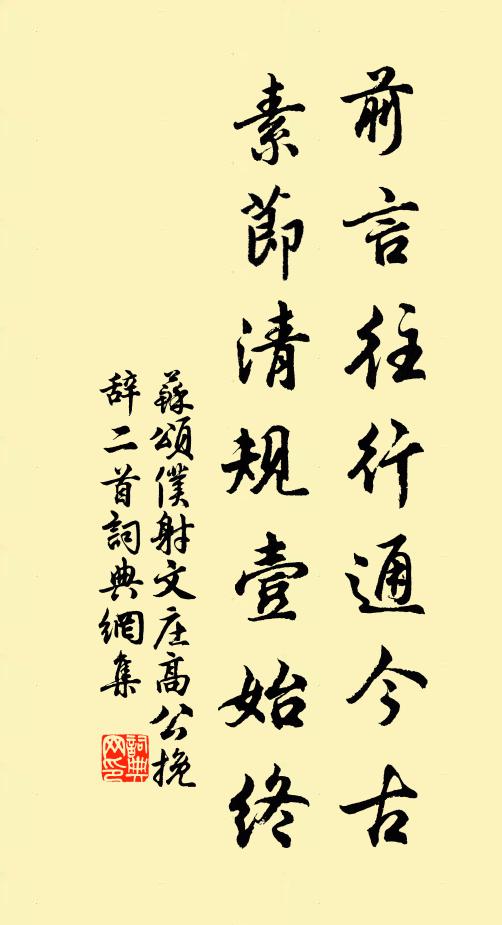 前言往行通今古
素節清規壹始終
蘇頌僕射文庄高公挽
辞二首詞典網集
詞典
网印